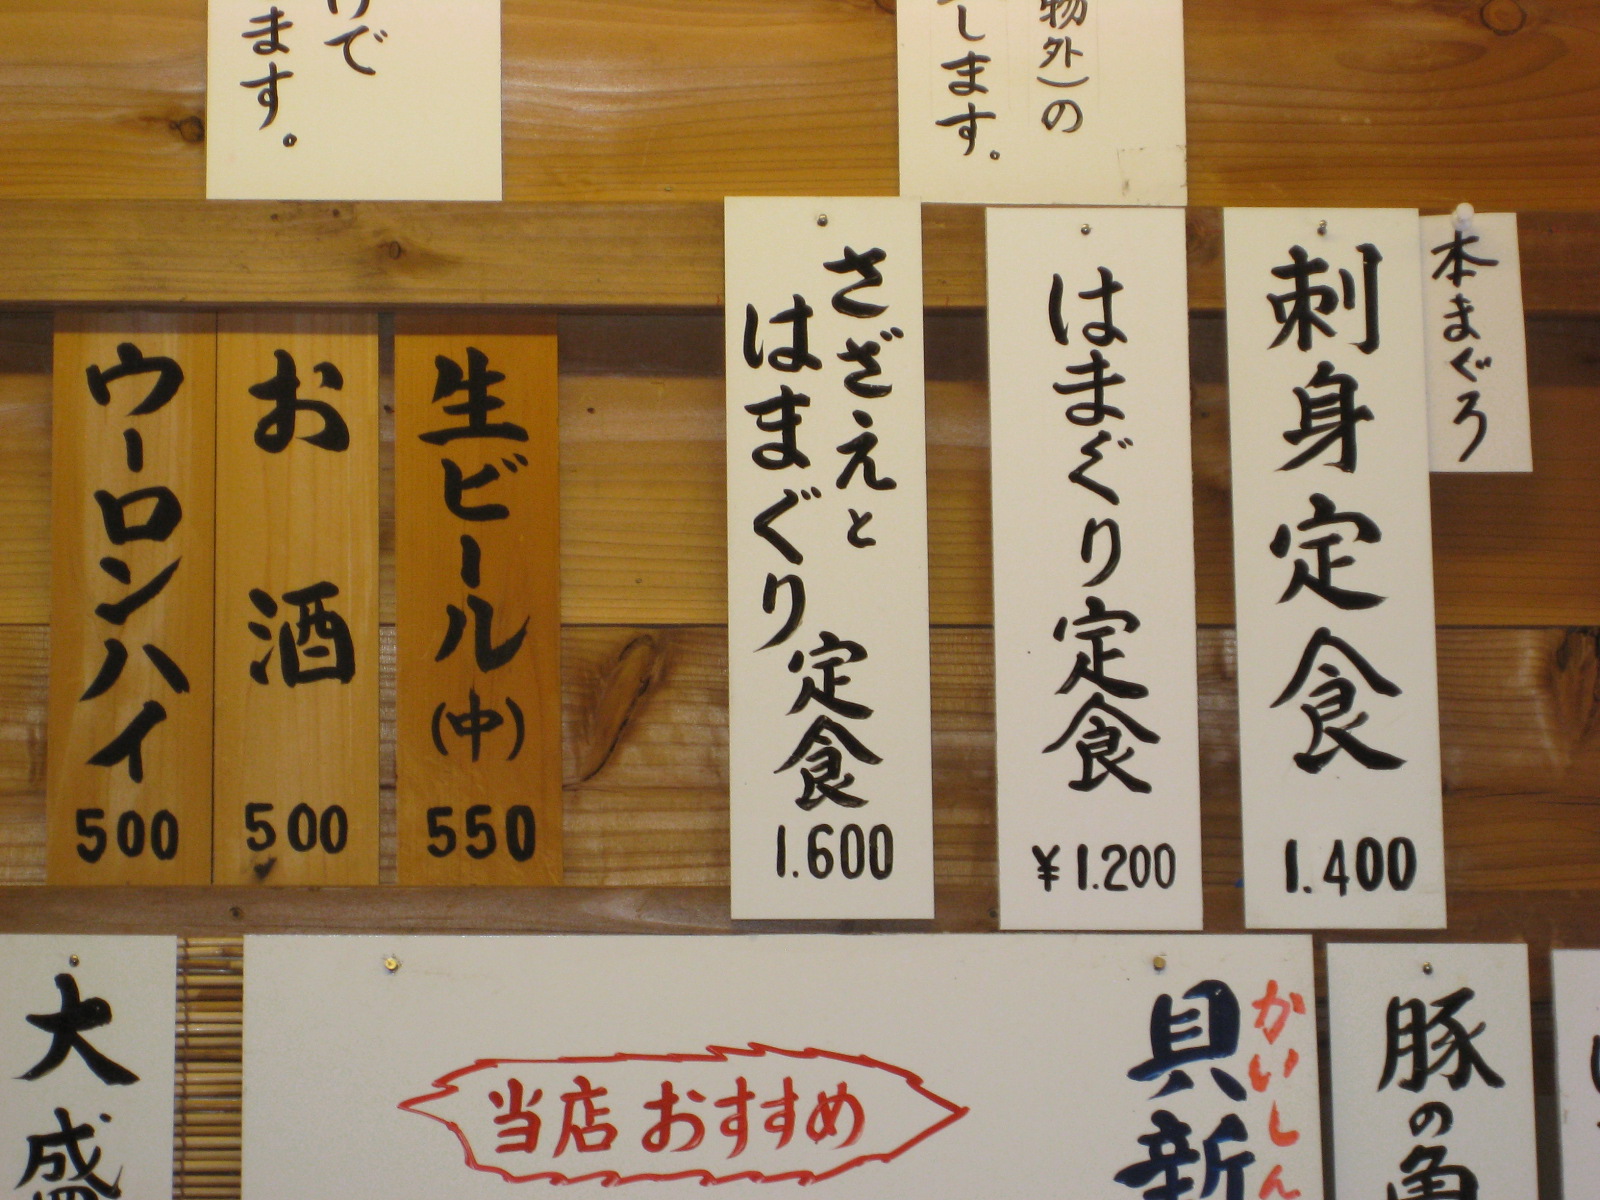 物外)の
します。
けで
ます。
本まぐろ
刺身定食
1.400
はまぐり定食
¥1.200
さざえと
はまぐり
定食
1.600
生ビール(中)
550
お酒
500
ウーロンハイ
500
豚の
かいしん
貝新
当店おすすめ
大盛